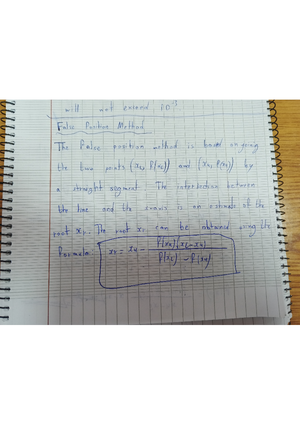 will not exceed 10⁻³
False Position Method
The False position method is based on joining
the two points (xL, f(xL)) and (xu, f(xu)) by
a straight segment. The intersection between
the line and the x-axis is an estimate of the
root xr. The root xr can be obtained using the
formula: xr = xu - f(xu)(xL - xu) / f(xL) - f(xu)